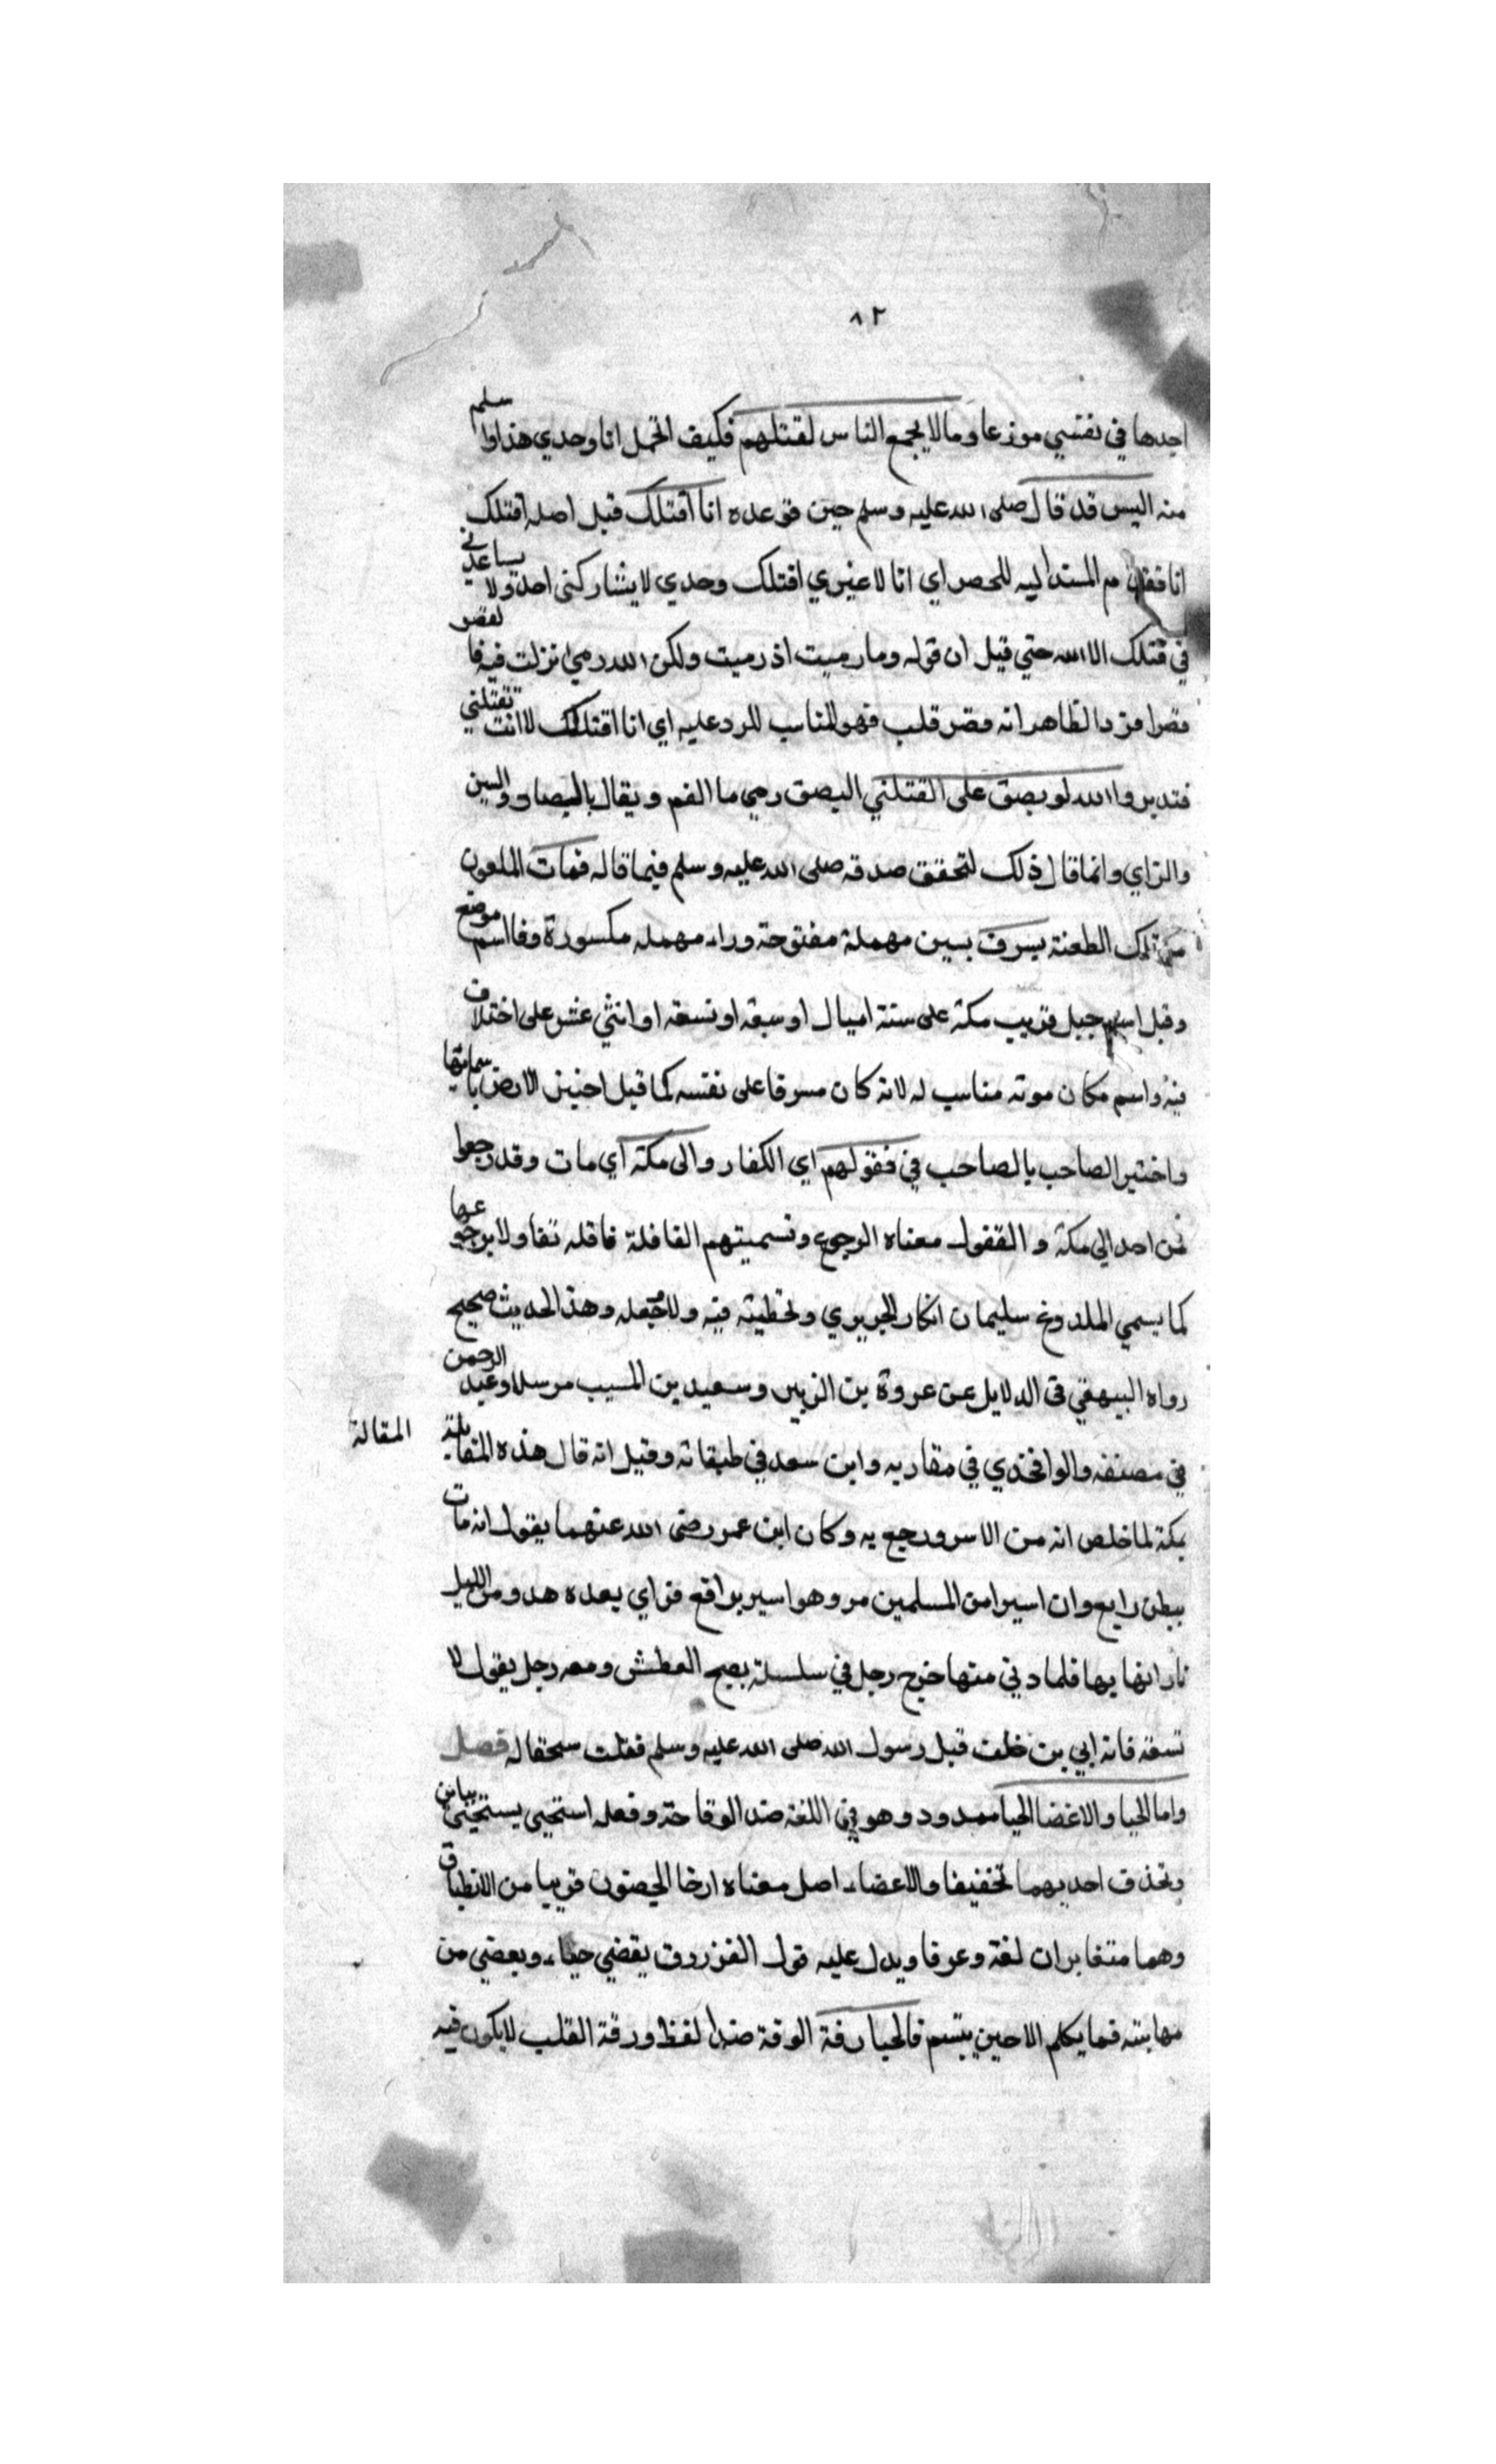 ٨٢
اجدها في نفسي موزعا وما لا يجمع الناس لقتلهم فكيف اتحمل انا وحدي هذا واسلم
منه اليس قد قال صلى الله عليه وسلم حين توعده انا اقتلك قبل اصله اقتلك
انا فقدم المسند اليه للحصر اي انا لا غيري اقتلك وحدي لا يشاركني احد ولا يساعدني
في قتلك الا الله حتي قيل ان قوله وما رميت اذ رميت ولكن الله رمي نزلت فيه فالقصر
قصر افرد الظاهر انه قصر قلب فهو المناسب للرد عليه اي انا اقتلك لا انت تقتلني
فتدبر والله لو بصق علي لقتلني البصق رمي ما الفم ويقال بالصاد والسين
والزاي وانما قال ذلك لتحقق صدقه صلى الله عليه وسلم فيما قاله فمات الملعون
من تلك الطعنة بسرف بسين مهملة مفتوحة وراء مهمله مكسورة وفا اسم موضع
وقيل اسم جبل قريب مكة على ستة اميال او سبعة او تسعه او اثني عشر على اختلاف
فيه واسم مكان موته مناسب له لانه كان مسرفا على نفسه كما قيل اختبر الارض باسمائها
واختبر الصاحب بالصاحب في قفولهم اي الكفار والى مكة اي مات وقد رجعوا
من احد الي مكة والقفول معناه الرجوع وتسميتهم القافلة قافله تفاولا برجوعها
كما يسمي الملدوغ سليما ان انكار الحريري وتخطيته فيه ولا وجه له وهذا الحديث صحيح
رواه البيهقي في الدلايل عن عروة بن الزبير وسعيد بن المسيب مرسلا وعبد الرحمن
في مصنفه والواقدي في مغازيه وابن سعد في طبقاته وقيل انه قال هذه المقابلة
المقالة
بمكة لما خلص انه من الاسر ورجع به وكان ابن عمر رضى الله عنهما يقول انه مات
ببطن رابع وان اسيرا من المسلمين مر وهو اسير براقع فراي بعده هدو من الليل
نارا فهابها فلما دني منها خرج رجل في سلسلة بصيح العطش ومعه رجل يقول لا
تسقه فانه ابي بن خلف قبل رسول الله صلى الله عليه وسلم فقلت سحقا له فصل
واما الحيا والاغضا الحيا ممدود وهو في اللغة ضد الوقاحة وفعله استحيى يستحيى بيائين
وتحذف احديهما تخفيفا والاغضاء اصل معناه ارخا الجفون قريبا من الانطباق
وهما متغايران لغة وعرفا ويدل عليه قول الفرزدوق يغضي حياء ويغضي من
مهابته فما يكلم الا حين يبتسم فالحيا رقة الرقة ضد الغلظ ورقة القلب لا يكون فيه